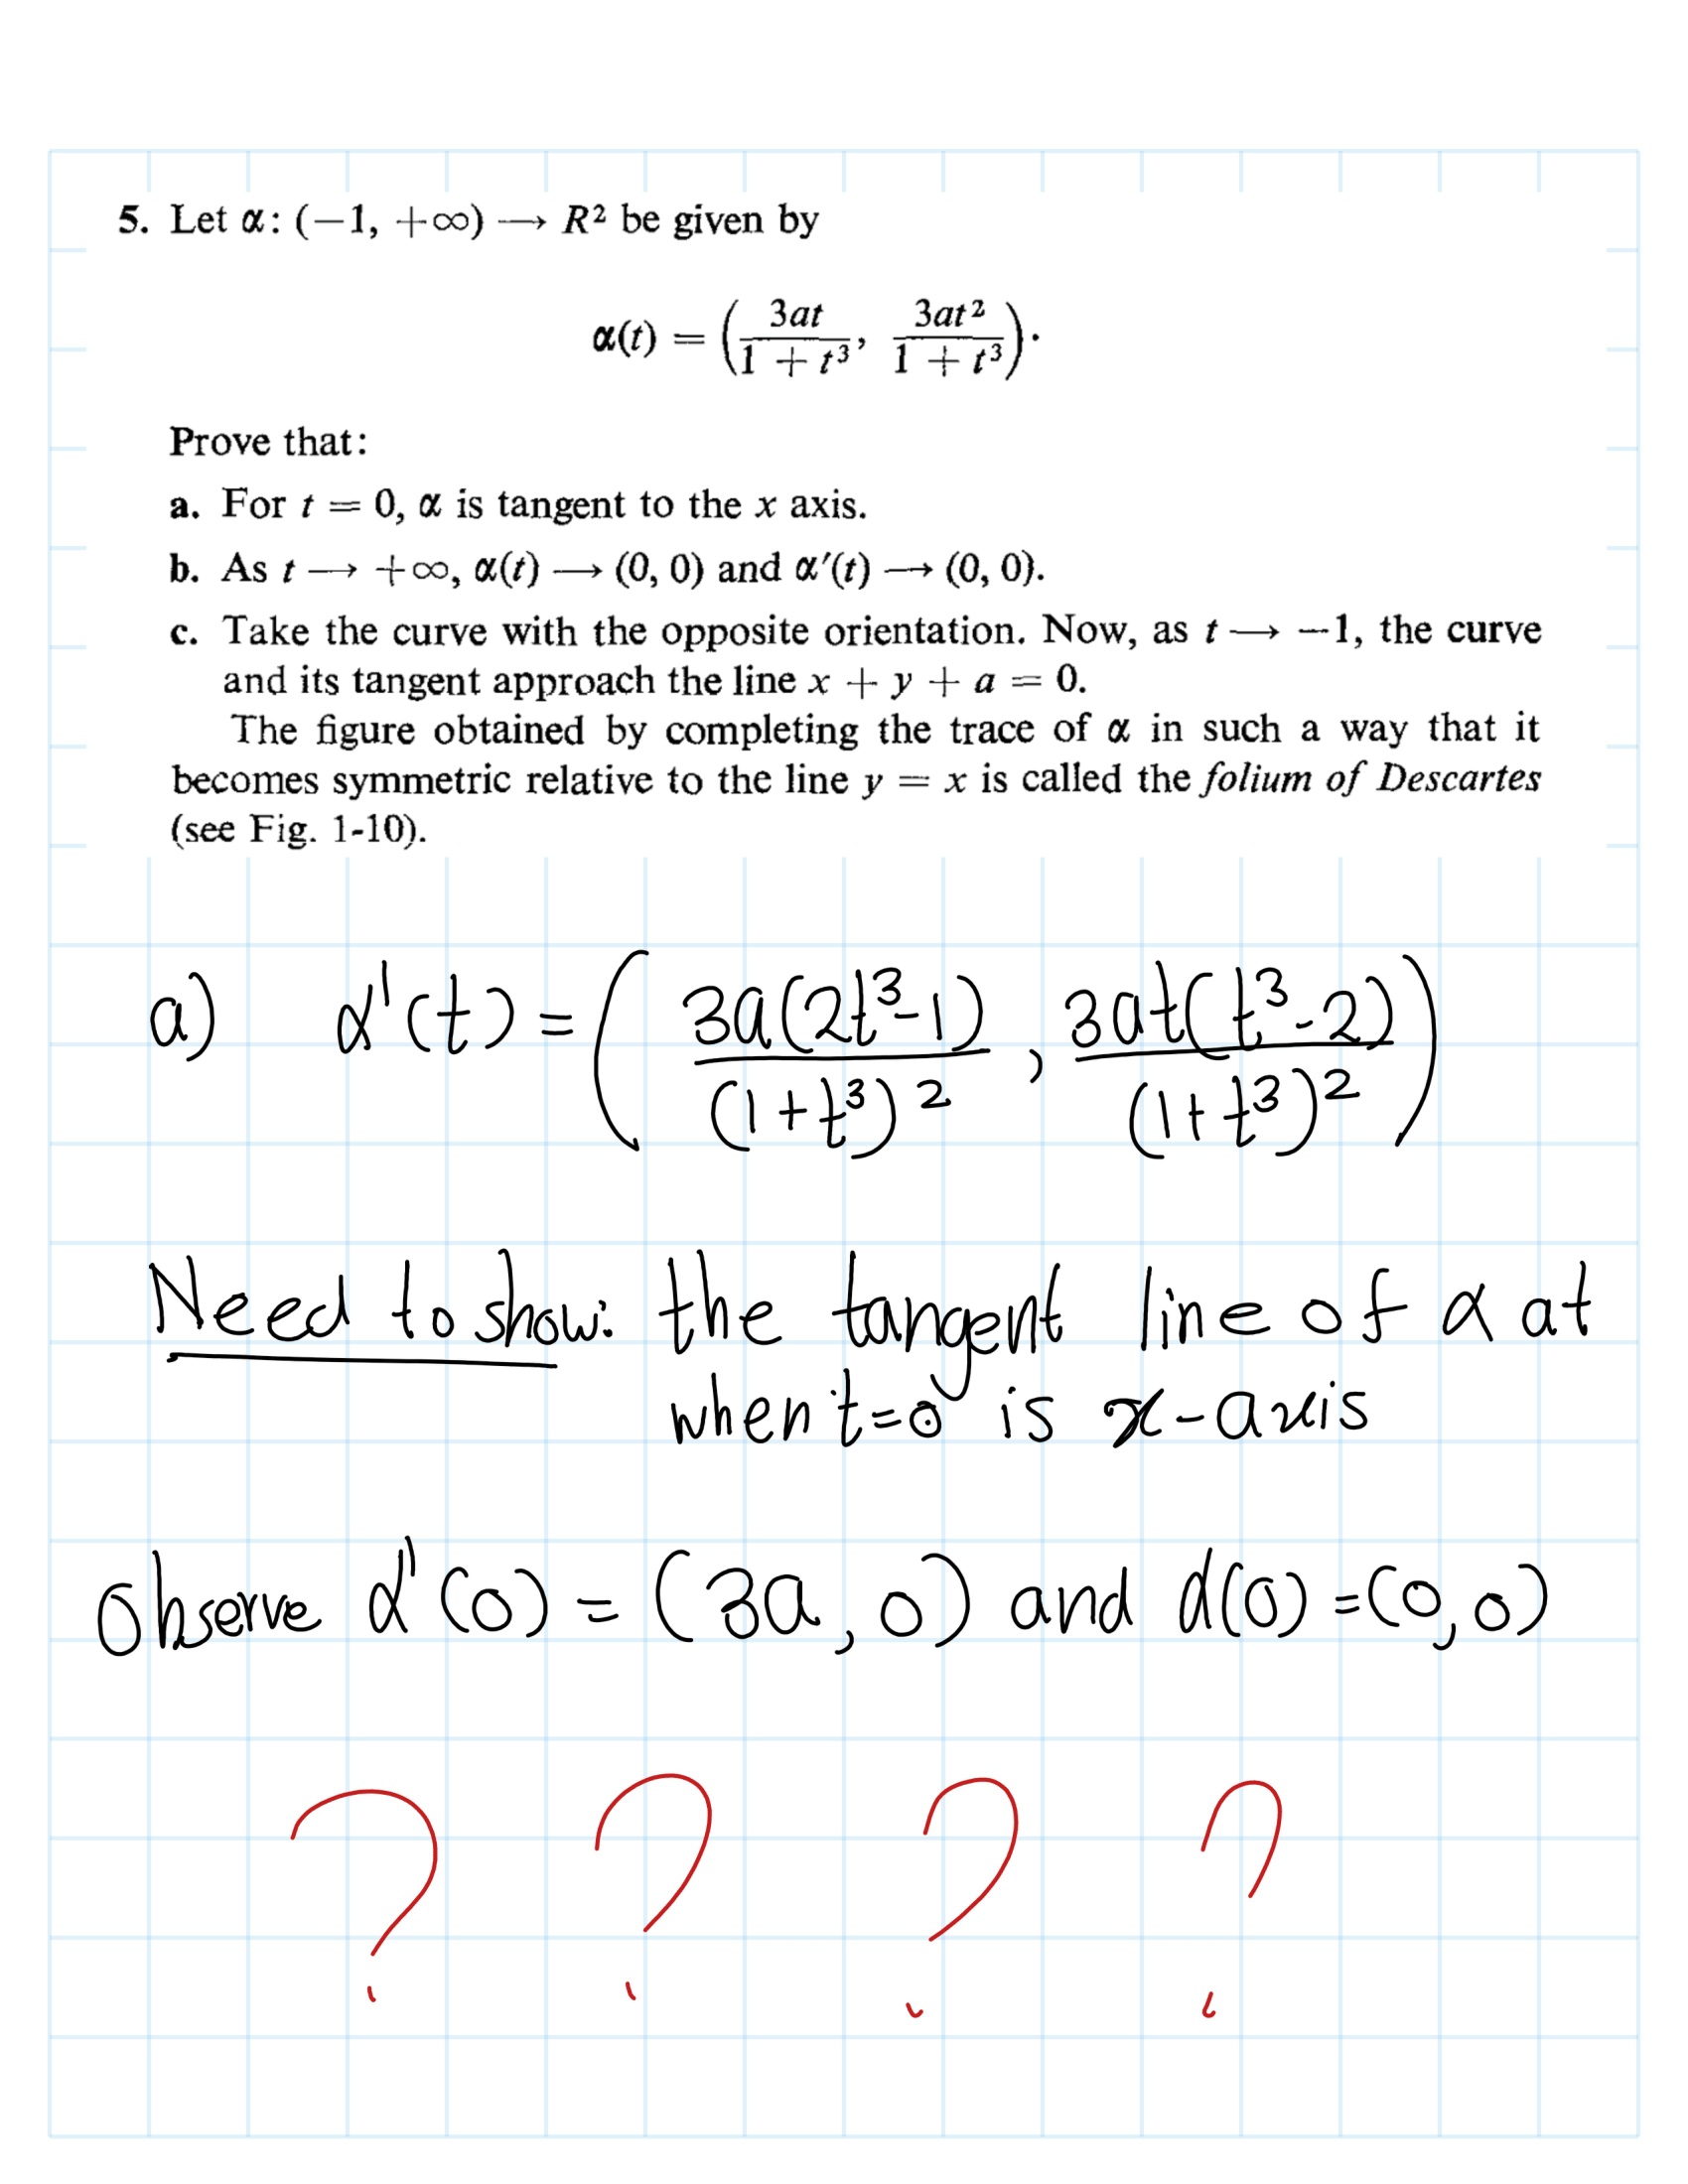 5. Let α: (−1, +∞) ⟶ R² be given by
α(t) = (3at/(1 + t³), 3at²/(1 + t³)).
Prove that:
a. For t = 0, α is tangent to the x axis.
b. As t ⟶ +∞, α(t) ⟶ (0, 0) and α′(t) ⟶ (0, 0).
c. Take the curve with the opposite orientation. Now, as t ⟶ −1, the curve
and its tangent approach the line x + y + a = 0.
The figure obtained by completing the trace of α in such a way that it
becomes symmetric relative to the line y = x is called the folium of Descartes
(see Fig. 1-10).
a) α'(t) = (3a(2t³-1)/(1+t³)², 3at(t³-2)/(1+t³)²)
Need to show: the tangent line of α at
when t=0 is x-axis
Observe α'(0) = (3a, 0) and α(0) = (0,0)
? ? ? ?